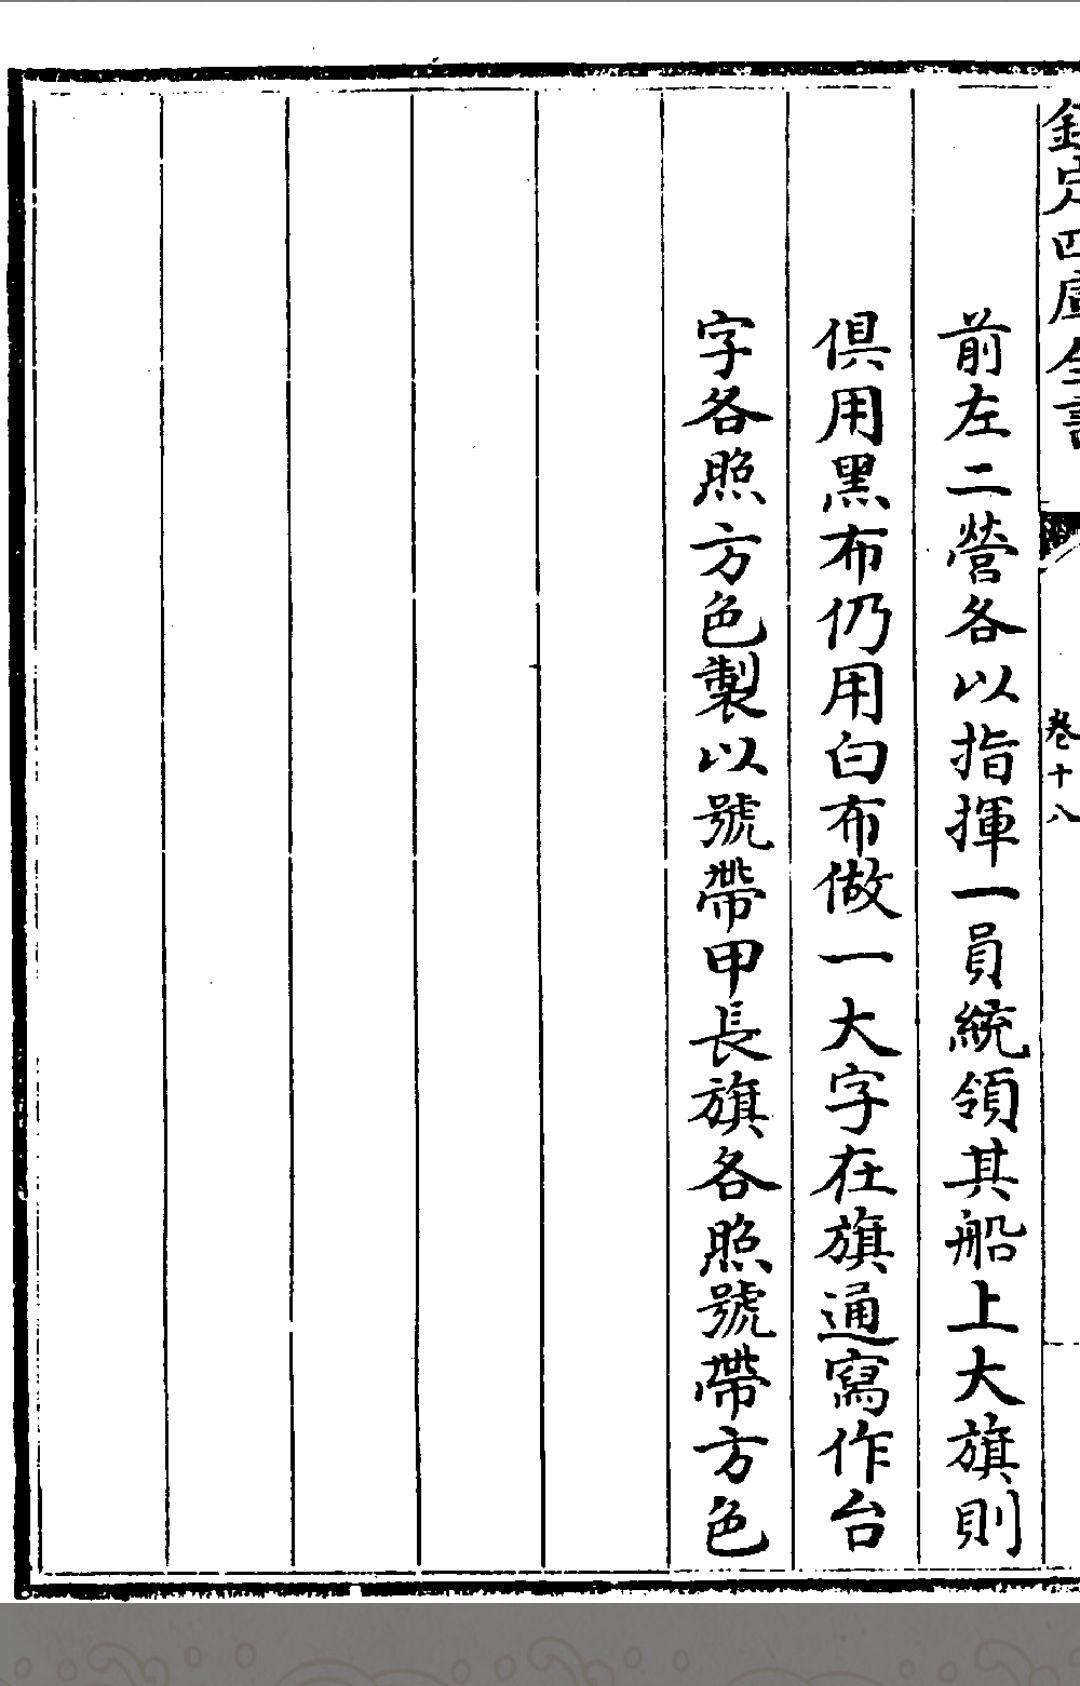 欽定四庫全書
卷十八
前左二營各以指揮一員統領其船上大旗則
俱用黑布仍用白布做一大字在旗通寫作台
字各照方色製以號帶甲長旗各照號帶方色